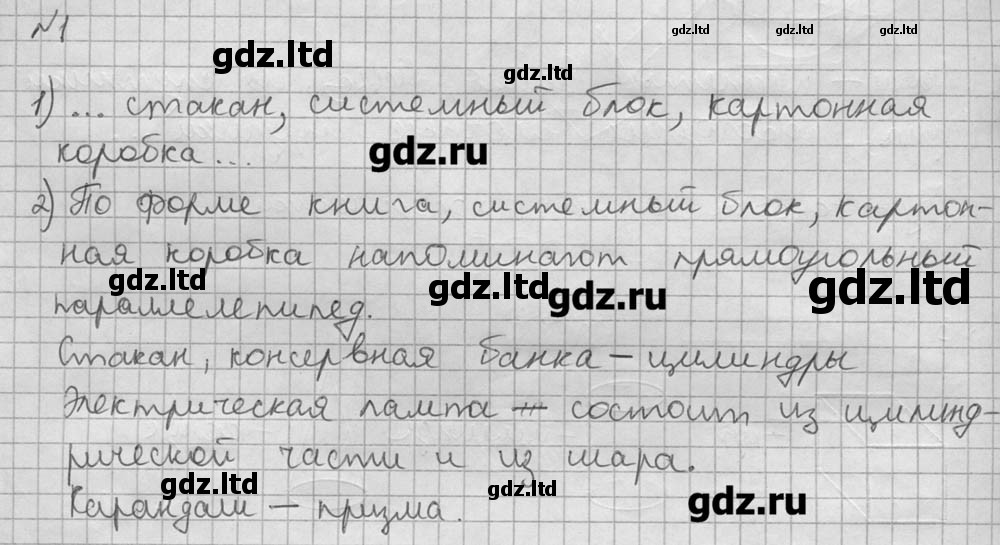 №1
gdz.ltd gdz.ltd gdz.ltd
gdz.ltd
gdz.ltd
1) ... стакан, системный блок, картонная
коробка ...
gdz.ru
2) По форме книга, системный блок, картон-
ная коробка напоминают прямоугольный
gdz.ltd gdz.ltd gdz.ru gdz.ltd
параллелепипед.
Стакан, консервная банка – цилиндры
Электрическая лампа – состоит из цилинд-
рической части и из шара.
gdz.ltd gdz.ltd gdz.ru
Карандаш – призма.